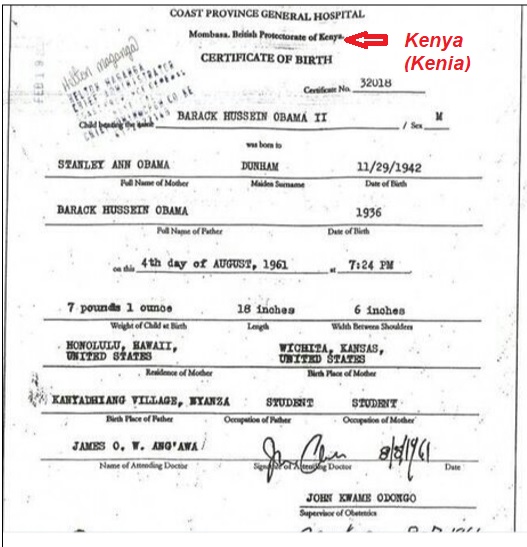 COAST PROVINCE GENERAL HOSPITAL
Mombasa, British Protectorate of Kenya.
Kenya
(Kenia)
CERTIFICATE OF BIRTH
FEB 19
Hilton Maganga
Certificate No. 32018
Child bearing the name BARACK HUSSEIN OBAMA II / Sex M
was born to
STANLEY ANN OBAMA DUNHAM 11/29/1942
Full Name of Mother Maiden Surname Date of Birth
BARACK HUSSEIN OBAMA 1936
Full Name of Father Date of Birth
on this 4th day of AUGUST, 1961 at 7:24 PM
7 pounds 1 ounce 18 inches 6 inches
Weight of Child at Birth Length Width Between Shoulders
HONOLULU, HAWAII, WICHITA, KANSAS,
UNITED STATES UNITED STATES
Residence of Mother Birth Place of Mother
KANYADHIANG VILLAGE, NYANZA STUDENT STUDENT
Birth Place of Father Occupation of Father Occupation of Mother
JAMES O. W. ANG'AWA 8/8/1961
Name of Attending Doctor Signature of Attending Doctor Date
JOHN KWAME ODONGO
Supervisor of Obstetrics